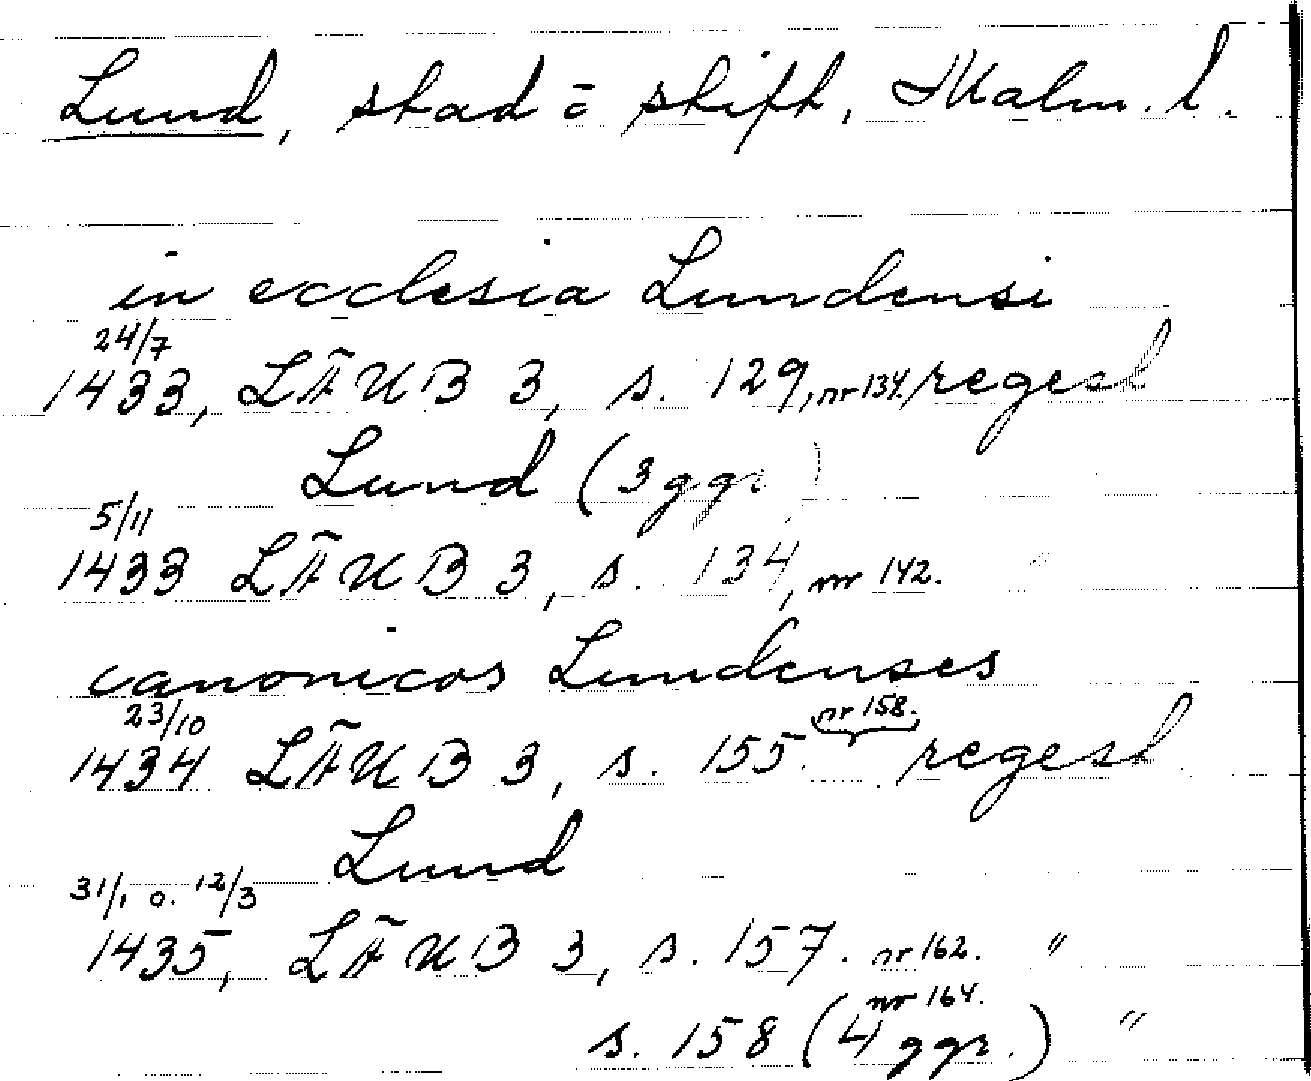 Lund, stad o. stift, Malm. l.
in ecclesia Lundensi
24/7
1433, LÄUB 3, s. 129, nr 134. regest
Lund (3 ggr )
5/11
1433 LÄUB 3, s. 134, nr 142. "
canonicos Lundenses
23/10
1434 LÄUB 3, s. 155. nr 158. regest
Lund
31/1 o. 12/3
1435, LÄUB 3, s. 157. nr 162. "
nr 164.
s. 158 (4 ggr.) "